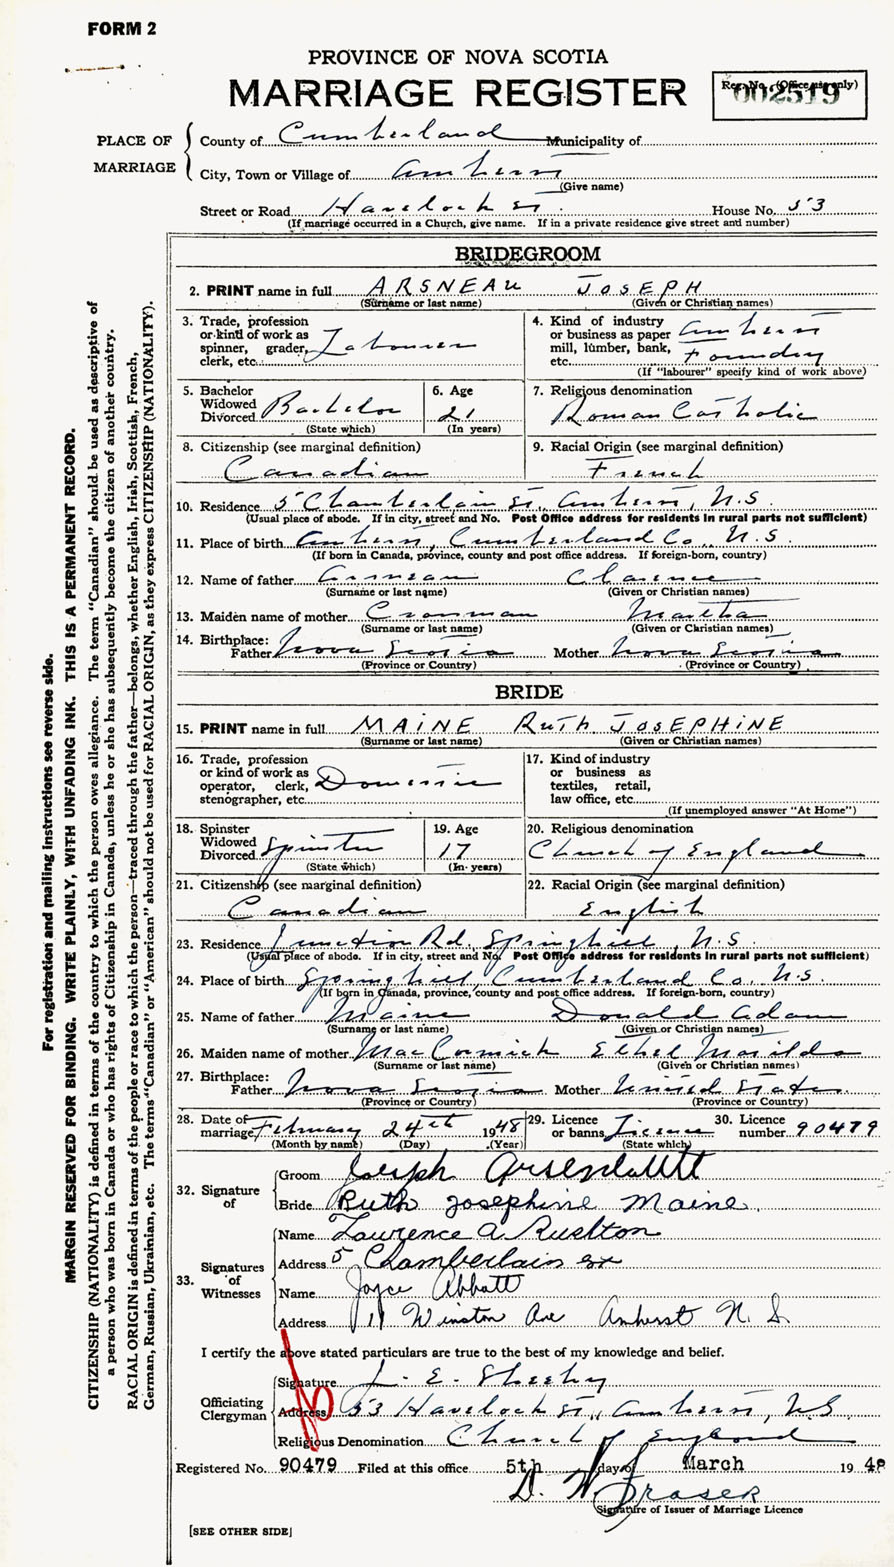 FORM 2
PROVINCE OF NOVA SCOTIA
MARRIAGE REGISTER
Reg. No. (Office use only)
002519
PLACE OF MARRIAGE
County of Cumberland Municipality of
City, Town or Village of Amherst
(Give name)
Street or Road Havelock St. House No. 53
(If marriage occurred in a Church, give name. If in a private residence give street and number)
BRIDEGROOM
2. PRINT name in full ARSNEAU JOSEPH
(Surname or last name) (Given or Christian names)
3. Trade, profession or kind of work as spinner, grader, clerk, etc. Labourer
4. Kind of industry or business as paper mill, lumber, bank, etc. Amherst Foundry
(If "labourer" specify kind of work above)
5. Bachelor Widowed Divorced Bachelor
(State which)
6. Age 21
(In years)
7. Religious denomination
Roman Catholic
8. Citizenship (see marginal definition)
Canadian
9. Racial Origin (see marginal definition)
French
10. Residence 5 Chamberlain St., Amherst, N.S.
(Usual place of abode. If in city, street and No. Post Office address for residents in rural parts not sufficient)
11. Place of birth Amherst, Cumberland Co., N.S.
(If born in Canada, province, county and post office address. If foreign-born, country)
12. Name of father Arsneau Clarence
(Surname or last name) (Given or Christian names)
13. Maiden name of mother Crossman Martha
(Surname or last name) (Given or Christian names)
14. Birthplace:
Father Nova Scotia Mother Nova Scotia
(Province or Country) (Province or Country)
BRIDE
15. PRINT name in full MAINE RUTH JOSEPHINE
(Surname or last name) (Given or Christian names)
16. Trade, profession or kind of work as operator, clerk, stenographer, etc. Domestic
17. Kind of industry or business as textiles, retail, law office, etc.
(If unemployed answer "At Home")
18. Spinster Widowed Divorced Spinster
(State which)
19. Age 17
(In years)
20. Religious denomination
Church of England
21. Citizenship (see marginal definition)
Canadian
22. Racial Origin (see marginal definition)
English
23. Residence Junction Rd., Springhill, N.S.
(Usual place of abode. If in city, street and No. Post Office address for residents in rural parts not sufficient)
24. Place of birth Springhill, Cumberland Co., N.S.
(If born in Canada, province, county and post office address. If foreign-born, country)
25. Name of father Maine Donald Adam
(Surname or last name) (Given or Christian names)
26. Maiden name of mother MacCormick Ethel Matilda
(Surname or last name) (Given or Christian names)
27. Birthplace:
Father Nova Scotia Mother United States
(Province or Country) (Province or Country)
28. Date of marriage February 24th 1948
(Month by name) (Day) (Year)
29. Licence or banns License
(State which)
30. Licence number 90479
32. Signature of
Groom Joseph
Bride Ruth Josephine Maine
33. Signatures of Witnesses
Name Lawrence A. Rushton
Address 5 Chamberlain St
Name Joyce Abbott
Address 11 Winston Ave Amherst N.S.
I certify the above stated particulars are true to the best of my knowledge and belief.
Officiating Clergyman
Signature E. Sheehy
Address 53 Havelock St., Amherst, N.S.
Religious Denomination Church of England
Registered No. 90479 Filed at this office 5th day of March 1948
D. W. Fraser
Signature of Issuer of Marriage Licence
[SEE OTHER SIDE]
For registration and mailing instructions see reverse side.
MARGIN RESERVED FOR BINDING. WRITE PLAINLY, WITH UNFADING INK. THIS IS A PERMANENT RECORD.
CITIZENSHIP (NATIONALITY) is defined in terms of the country to which the person owes allegiance. The term "Canadian" should be used as descriptive of
a person who was born in Canada or who has rights of Citizenship in Canada, unless he or she has subsequently become the citizen of another country.
RACIAL ORIGIN is defined in terms of the people or race to which the person—traced through the father—belongs, whether English, Irish, Scottish, French,
German, Russian, Ukrainian, etc. The terms "Canadian" or "American" should not be used for RACIAL ORIGIN, as they express CITIZENSHIP (NATIONALITY).